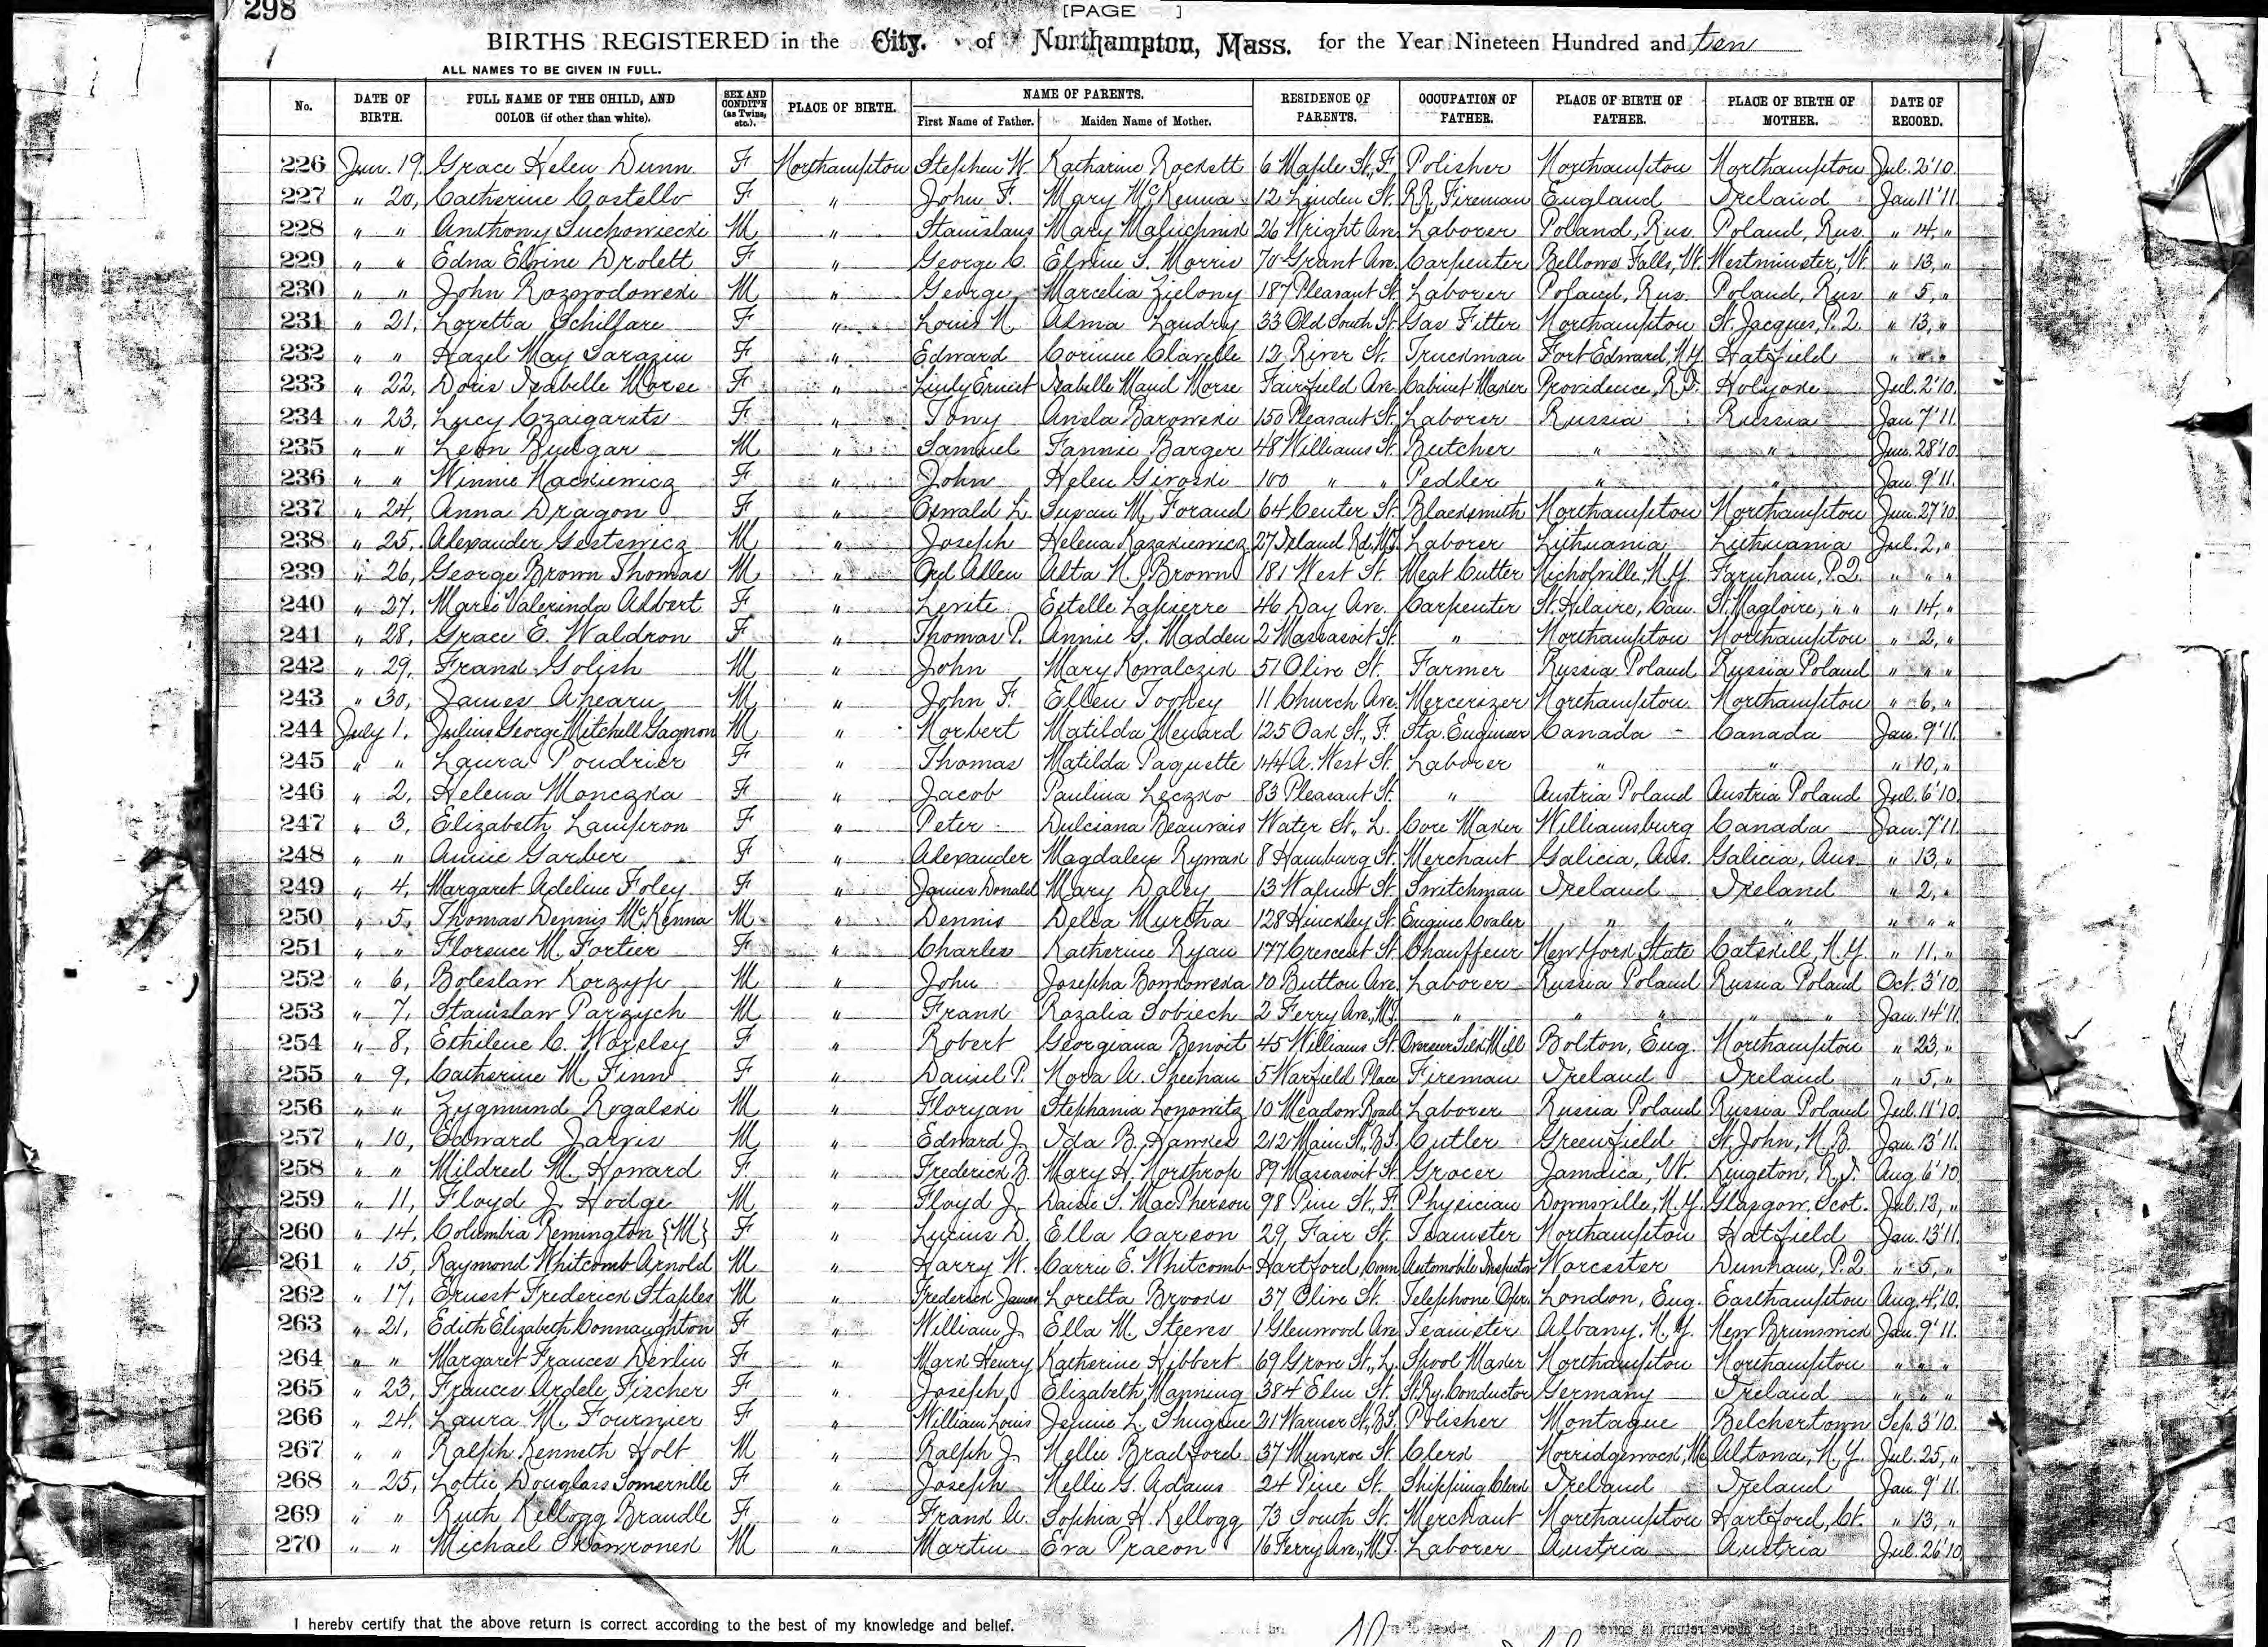 298
[PAGE ]
BIRTHS REGISTERED in the City. of Northampton, Mass. for the Year Nineteen Hundred and ten
ALL NAMES TO BE GIVEN IN FULL.
No. DATE OF BIRTH. FULL NAME OF THE CHILD, AND COLOR (if other than white). SEX AND CONDIT'N (as Twins, etc.). PLACE OF BIRTH. NAME OF PARENTS. First Name of Father. Maiden Name of Mother. RESIDENCE OF PARENTS. OCCUPATION OF FATHER. PLACE OF BIRTH OF FATHER. PLACE OF BIRTH OF MOTHER. DATE OF RECORD.
226 Jun. 19, Grace Helen Dunn F Northampton Stephen W. Katharine Rockett 6 Maple St., F. Polisher Northampton Northampton Jul. 2'10.
227 " 20, Catherine Costello F " John F. Mary McKenna 12 Linden St. R.R. Fireman England Ireland Jan 11'11
228 " " Anthony Suchowiecki M " Stanislaus Mary 26 Wright Ave. Laborer Poland, Rus. Poland, Rus. " 14, "
229 " " Edna Elvine Drolett F " George C. Elvine S. Morris 70 Grant Ave. Carpenter Bellows Falls, Vt. Westminster, Vt. " 13, "
230 " " John Rozwodowski M " George Marcelia Zielony 187 Pleasant St. Laborer Poland, Rus. Poland, Rus. " 5, "
231 " 21, Loretta Schillfare F " Louis N. Alma Landry 33 Old South St. Gas Fitter Northampton St. Jacques, P.Q. " 13, "
232 " " Hazel May Sarazin F " Edward Corinne Clavelle 12 River St. Truckman Fort Edward, N.Y. Hatfield " " "
233 " 22, Doris Isabelle Morse F " Ernest Isabelle Maud Morse Fairfield Ave. Cabinet Maker Providence, R.I. Holyoke Jul. 2'10.
234 " 23, Lucy Czaigarits F " Tony Anela Barowski 150 Pleasant St. Laborer Russia Russia Jan 7'11.
235 " " Leon Bulgar M " Samuel Fannie Barger 48 Williams St. Butcher " " Jun. 28'10
236 " " Winnie Mackiewicz F " John Helen Giroski 100 " " Pedler " " Jan. 9'11.
237 " 24, Anna Dragon F " Oswald L. Susan M. Forand 64 Center St. Blacksmith Northampton Northampton Jun. 27'10.
238 " 25, Alexander Gestewicz M " Joseph Helena Kazakiewicz 27 Island Rd., M.T. Laborer Lithuania Lithuania Jul. 2, "
239 " 26, George Brown Thomas M " Orel Allen Alta N. Brown 181 West St. Meat Cutter Nicholville, N.Y. Farnham, P.Q. " " "
240 " 27, Marie Valerinda Albert F " Levite Estelle Lapierre 46 Day Ave. Carpenter St. Hilaire, Can. St. Magloire, " " " 14, "
241 " 28, Grace E. Waldron F " Thomas P. Annie G. Madden 2 Massasoit St. " Northampton Northampton " 2, "
242 " 29, Frank Golish M " John Mary Kowalczik 51 Olive St. Farmer Russia Poland Russia Poland " " "
243 " 30, James Ahearn M " John F. Ellen Toohey 11 Church Ave. Mercerizer Northampton Northampton " 6, "
244 July 1, Julius George Mitchell Gagnon M " Norbert Matilda Menard 125 Oak St., F. Sta. Engineer Canada Canada Jan. 9'11.
245 " " Laura Poudrier F " Thomas Matilda Paquette 144 A. West St. Laborer " " " 10, "
246 " 2, Helena Monczka F " Jacob Paulina Leczko 83 Pleasant St. " Austria Poland Austria Poland Jul. 6'10.
247 " 3, Elizabeth Lampron F " Peter Dulciana Beauvais Water St., L. Core Maker Williamsburg Canada Jan. 7'11.
248 " " Annie Garber F " Alexander Magdalen Rymak 8 Hamburg St. Merchant Galicia, Aus. Galicia, Aus. " 13, "
249 " 4, Margaret Adeline Foley F " James Donald Mary Daley 13 Walnut St. Switchman Ireland Ireland " 2, "
250 " 5, Thomas Dennis McKenna M " Dennis Delia Murtha 128 Hinckley St. Engine Coaler " " " " "
251 " " Florence M. Fortier F " Charles Katherine Ryan 177 Crescent St. Chauffeur New York State Catskill, N.Y. " 11, "
252 " 6, Boleslaw Korzyp M " John Josepha Bonkowska 10 Button Ave. Laborer Russia Poland Russia Poland Oct. 3'10.
253 " 7, Stanislaw Parzych M " Frank Rozalia Sobiech 2 Ferry Ave., M.T. " " " " " Jan. 14'11.
254 " 8, Ethilene C. Worsley F " Robert Georgiana Benoit 45 Williams St. Overseer Silk Mill Bolton, Eng. Northampton " 23, "
255 " 9, Catherine M. Finn F " Daniel P. Nora A. Sheehan 5 Warfield Place Fireman Ireland Ireland " 5, "
256 " " Zygmund Rogalski M " Floryan Stephania Lonowitz 10 Meadow Road Laborer Russia Poland Russia Poland Jul. 11'10.
257 " 10, Edward Jarvis M " Edward J. Ida B. Hawkes 212 Main St., B.S. Cutler Greenfield St. John, N.B. Jan. 13'11.
258 " " Mildred M. Howard F " Frederick B. Mary H. Northrop 89 Massasoit St. Grocer Jamaica, Vt. Kingston, R.I. Aug. 6'10.
259 " 11, Floyd J. Hodge M " Floyd J. Daisie S. MacPherson 98 Pine St., F. Physician Downsville, N.Y. Glasgow, Scot. Jul. 13, "
260 " 14, Columbia Remington {M} F " Lucius D. Ella Carson 29 Fair St. Teamster Northampton Hatfield Jan. 13'11.
261 " 15, Raymond Whitcomb Arnold M " Harry W. Carrie E. Whitcomb Hartford, Conn. Automobile Inspector Worcester Dunham, P.Q. " 5, "
262 " 17, Ernest Frederick Staples M " Frederick James Loretta Brooks 37 Olive St. Telephone Oper. London, Eng. Easthampton Aug. 4,'10.
263 " 21, Edith Elizabeth Connaughton F " William J. Ella M. Steeves 1 Glenwood Ave Teamster Albany, N.Y. New Brunswick Jan. 9'11.
264 " " Margaret Frances Devlin F " Mark Henry Katherine Hibbert 69 Grove St., L. Spool Maker Northampton Northampton " " "
265 " 23, Frances Ardele Fischer F " Joseph Elizabeth Manning 384 Elm St. St. Ry. Conductor Germany Ireland " " "
266 " 24, Laura M. Fournier F " William Louis Jennie L. Shugrue 21 Warner St., B.S. Polisher Montague Belchertown Sep. 3'10.
267 " " Ralph Kenneth Holt M " Ralph J. Nellie Bradford 37 Munroe St. Clerk Norridgewock, Me. Altona, N.Y. Jul. 25, "
268 " 25, Lottie Douglass Somerville F " Joseph Nellie G. Adams 24 Pine St. Shipping Clerk Ireland Ireland Jan. 9'11.
269 " " Ruth Kellogg Brandle F " Frank A. Sophia H. Kellogg 73 South St. Merchant Northampton Hartford, Ct. " 13, "
270 " " Michael Skowronek M " Martin Eva Pracon 16 Ferry Ave., M.T. Laborer Austria Austria Jul. 26'10
I hereby certify that the above return is correct according to the best of my knowledge and belief.